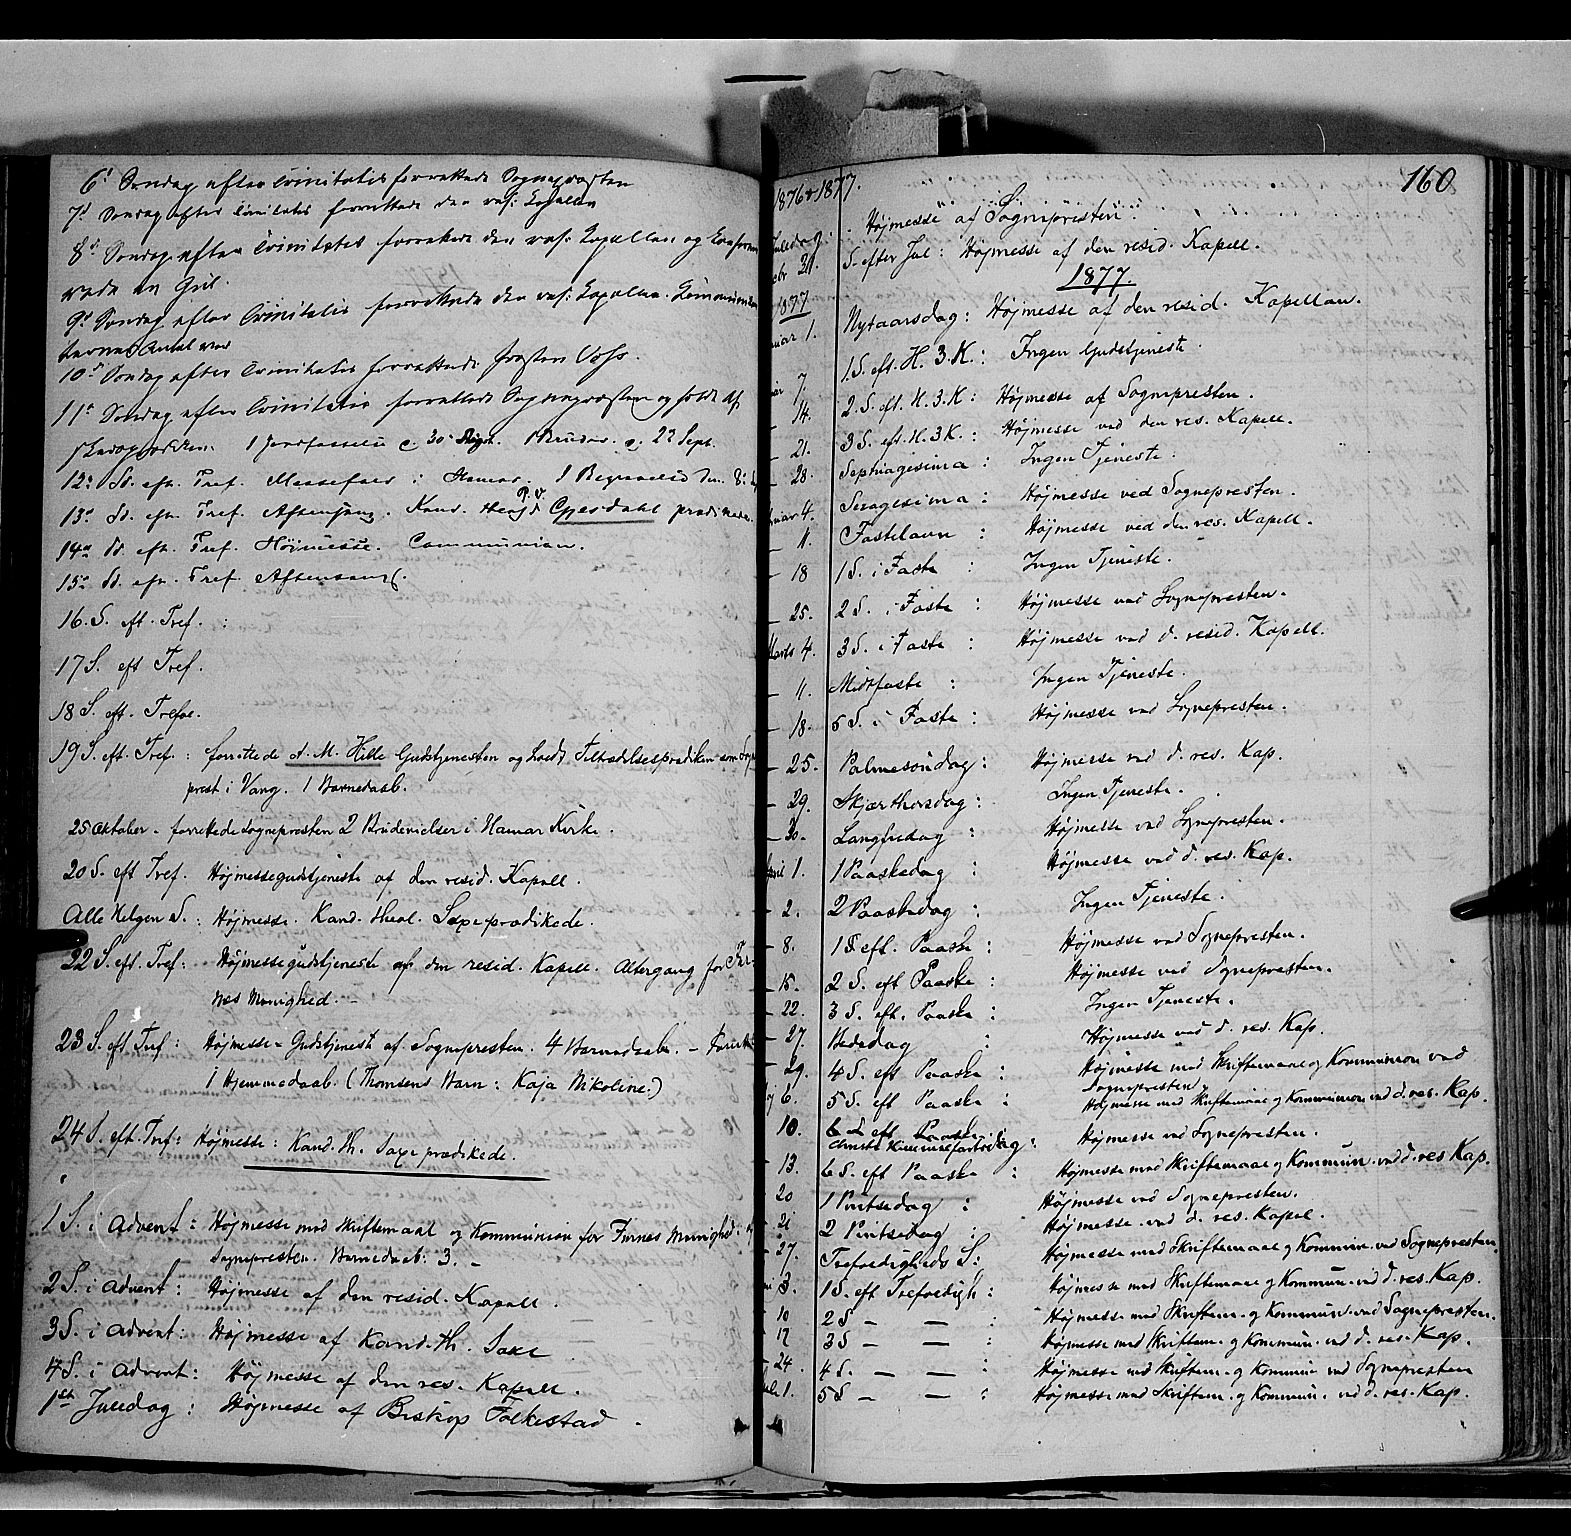 6t Søndag efter Trinitatis forrettede Sognepresten
7d Søndag efter Trinitatis forrettede den res: Kapellan
8d Søndag efter Trinitatis forrettede den res: Kapellan og
9d Søndag efter Trinitatis forrettede den res: Kapellan.
Antal var
10d Søndag efter Trinitatis forrettede Voss.
11e Søndag efter Trinitatis forrettede Sognepresten og holdt Af-
skedsprædiken. 22 Sept.
12e Sd. eft. Tref. Messefald i Hamar. 1 Begravelse den
13e Sd. eft. Tref. Aftensang. Kand. Gjesdahl prædikede
14e Sd. eft. Tref. Højmesse. Communion.
15e Sd. eft. Tref. Aftensang.
16. S. eft. Tref. :
17 S. eft Tref.
18 S. eft. Trefol.
19 S. eft. Tref. : forrettede A. M. Hille Gudstjenesten og holdt Tiltrædelsesprædiken som Sogne-
prest i Vang. 1 Barnedaab.
25 Oktober - forrettede Sognepresten 2 Brudevielser i Hamar Kirke.
20 S. eft Tref. Højmessegudstjeneste af den resid. Kapell.
Alle Helgen S. : Højmesse. Kand. theol. Saxe prædikede.
22 S. eft. Tref: Højmessegudstjeneste af den resid. Kapell. Altergang for Fur-
nes Menighed. -
23 S. eft Tref : Højmesse-Gudstjeneste af Sognepresten. 4 Barnedaab. -
1 Hjemmedaab. (Thomsens Barn: Kaja Nikoline.)
24 S. eft. Tref: Højmesse: Kand. th. Saxe prædikede.
1 S. i Advent : Højmesse med Skriftemaal og Kommunion for Furnes Menighed:
Sognepresten. Barnedaab: 3. -
2 S. i Advent : Højmesse af den resid. Kapell.
3 S. i Advent : Højmesse af Kand. th. Saxe
4 S. i Advent : Højmesse af den res. Kapell.
1ste Juledag : Højmesse af Biskop Folkestad.
160
1876 & 1877.
Juledag: Højmesse af Sognepresten.
31. S. efter Jul : Højmesse af den resid. Kapell.
1877.
1877
1. Nytaarsdag : Højmesse af den resid. Kapellan.
7. 1 S. eft. H. 3. K. : Ingen Gudstjeneste.
14. 2. S. eft. H. 3. K : Højmesse af Sognepresten.
- 21. 3 S. eft. H. 3 K. : Højmesse ved den res. Kapell.
- 28. Septuagesima : Ingen Tjeneste.
4. Sexagesima : Højmesse ved Sognepresten.
- 11. Fastelavn : Højmesse ved den res. Kapell.
- 18 1 S. i Faste : Ingen Tjeneste.
- 25. 2 S. i Faste : Højmesse ved Sognepresten.
Marts 4. 3 S. i Faste : Højmesse ved d. resid. Kapell.
- 11. Midtfaste : Ingen Tjeneste.
- 18. 5 S. i Faste : Højmesse ved Sognepresten.
- 25. Palmesøndag : Højmesse ved d. res. Kap.
- 29. Skjærthorsdag : Ingen Tjeneste.
- 30. Langfredag : Højmesse ved Sognepresten.
April 1. 1 Paaskedag : Højmesse ved d. res. Kap.
- 2. 2 Paaskedag : Ingen Tjeneste.
- 8. 1 S. eft. Paaske : Højmesse ved Sognepresten.
- 15. 2 S. eft Paaske : Højmesse ved Sognepresten.
- 22. 3 S. eft. Paaske : Ingen Tjeneste.
- 27. Bededag : Højmesse ved d. res. Kap.
- 29. 4 S. eft Paaske : Højmesse med Skriftemaal og Kommunion ved
Sognepresten
6. 5 S. eft Paaske : Højmesse med Skriftemaal og Kommunion ved d. res. Kap.
10. Christi Himmelfartsdag : Højmesse ved Sognepresten.
- 13. 6 S. eft Paaske : Højmesse med Skriftemaal og Kommun. ved d. res Kap.
- 20 1 Pintsedag : Højmesse ved Sognepresten.
- 21 2 Pintsedag : Højmesse ved d. res. Kapell.
- 27. Trefoldigheds S. : Højmesse med Skriftemaal og Kommun. ved Sognepresten.
3. 1 S. eft Trefoldigh : Højmesse med Skriftemaal og Kommun. ved d. res. Kap.
10 2 S - - : Højmesse med Skriftem. og Kommun. ved Sognepresten.
17 3 S - - : Højmesse med Skriftem. og Kommun. ved d. res. Kap.
24. 4 S. - - : Højmesse med Skriftem. og Kommun ved Sognepresten
1. 5 S - - : Højmesse med Skriftem. og Kommun. ved d. res. Kap.